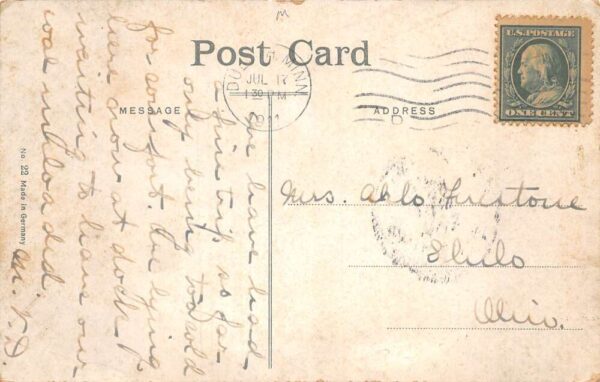 M
Post Card
DULUTH, MINN.
JUL 17
1 30 PM
1911
D
U.S. POSTAGE
ONE CENT
MESSAGE
ADDRESS
No. 22 Made in Germany
we have had
a fine trip so far
only being to cold
for comfort. Are lying
here now at dock
waiting to have our
coal unloaded
M. V. D.
Mrs. Firestone
Ohio.